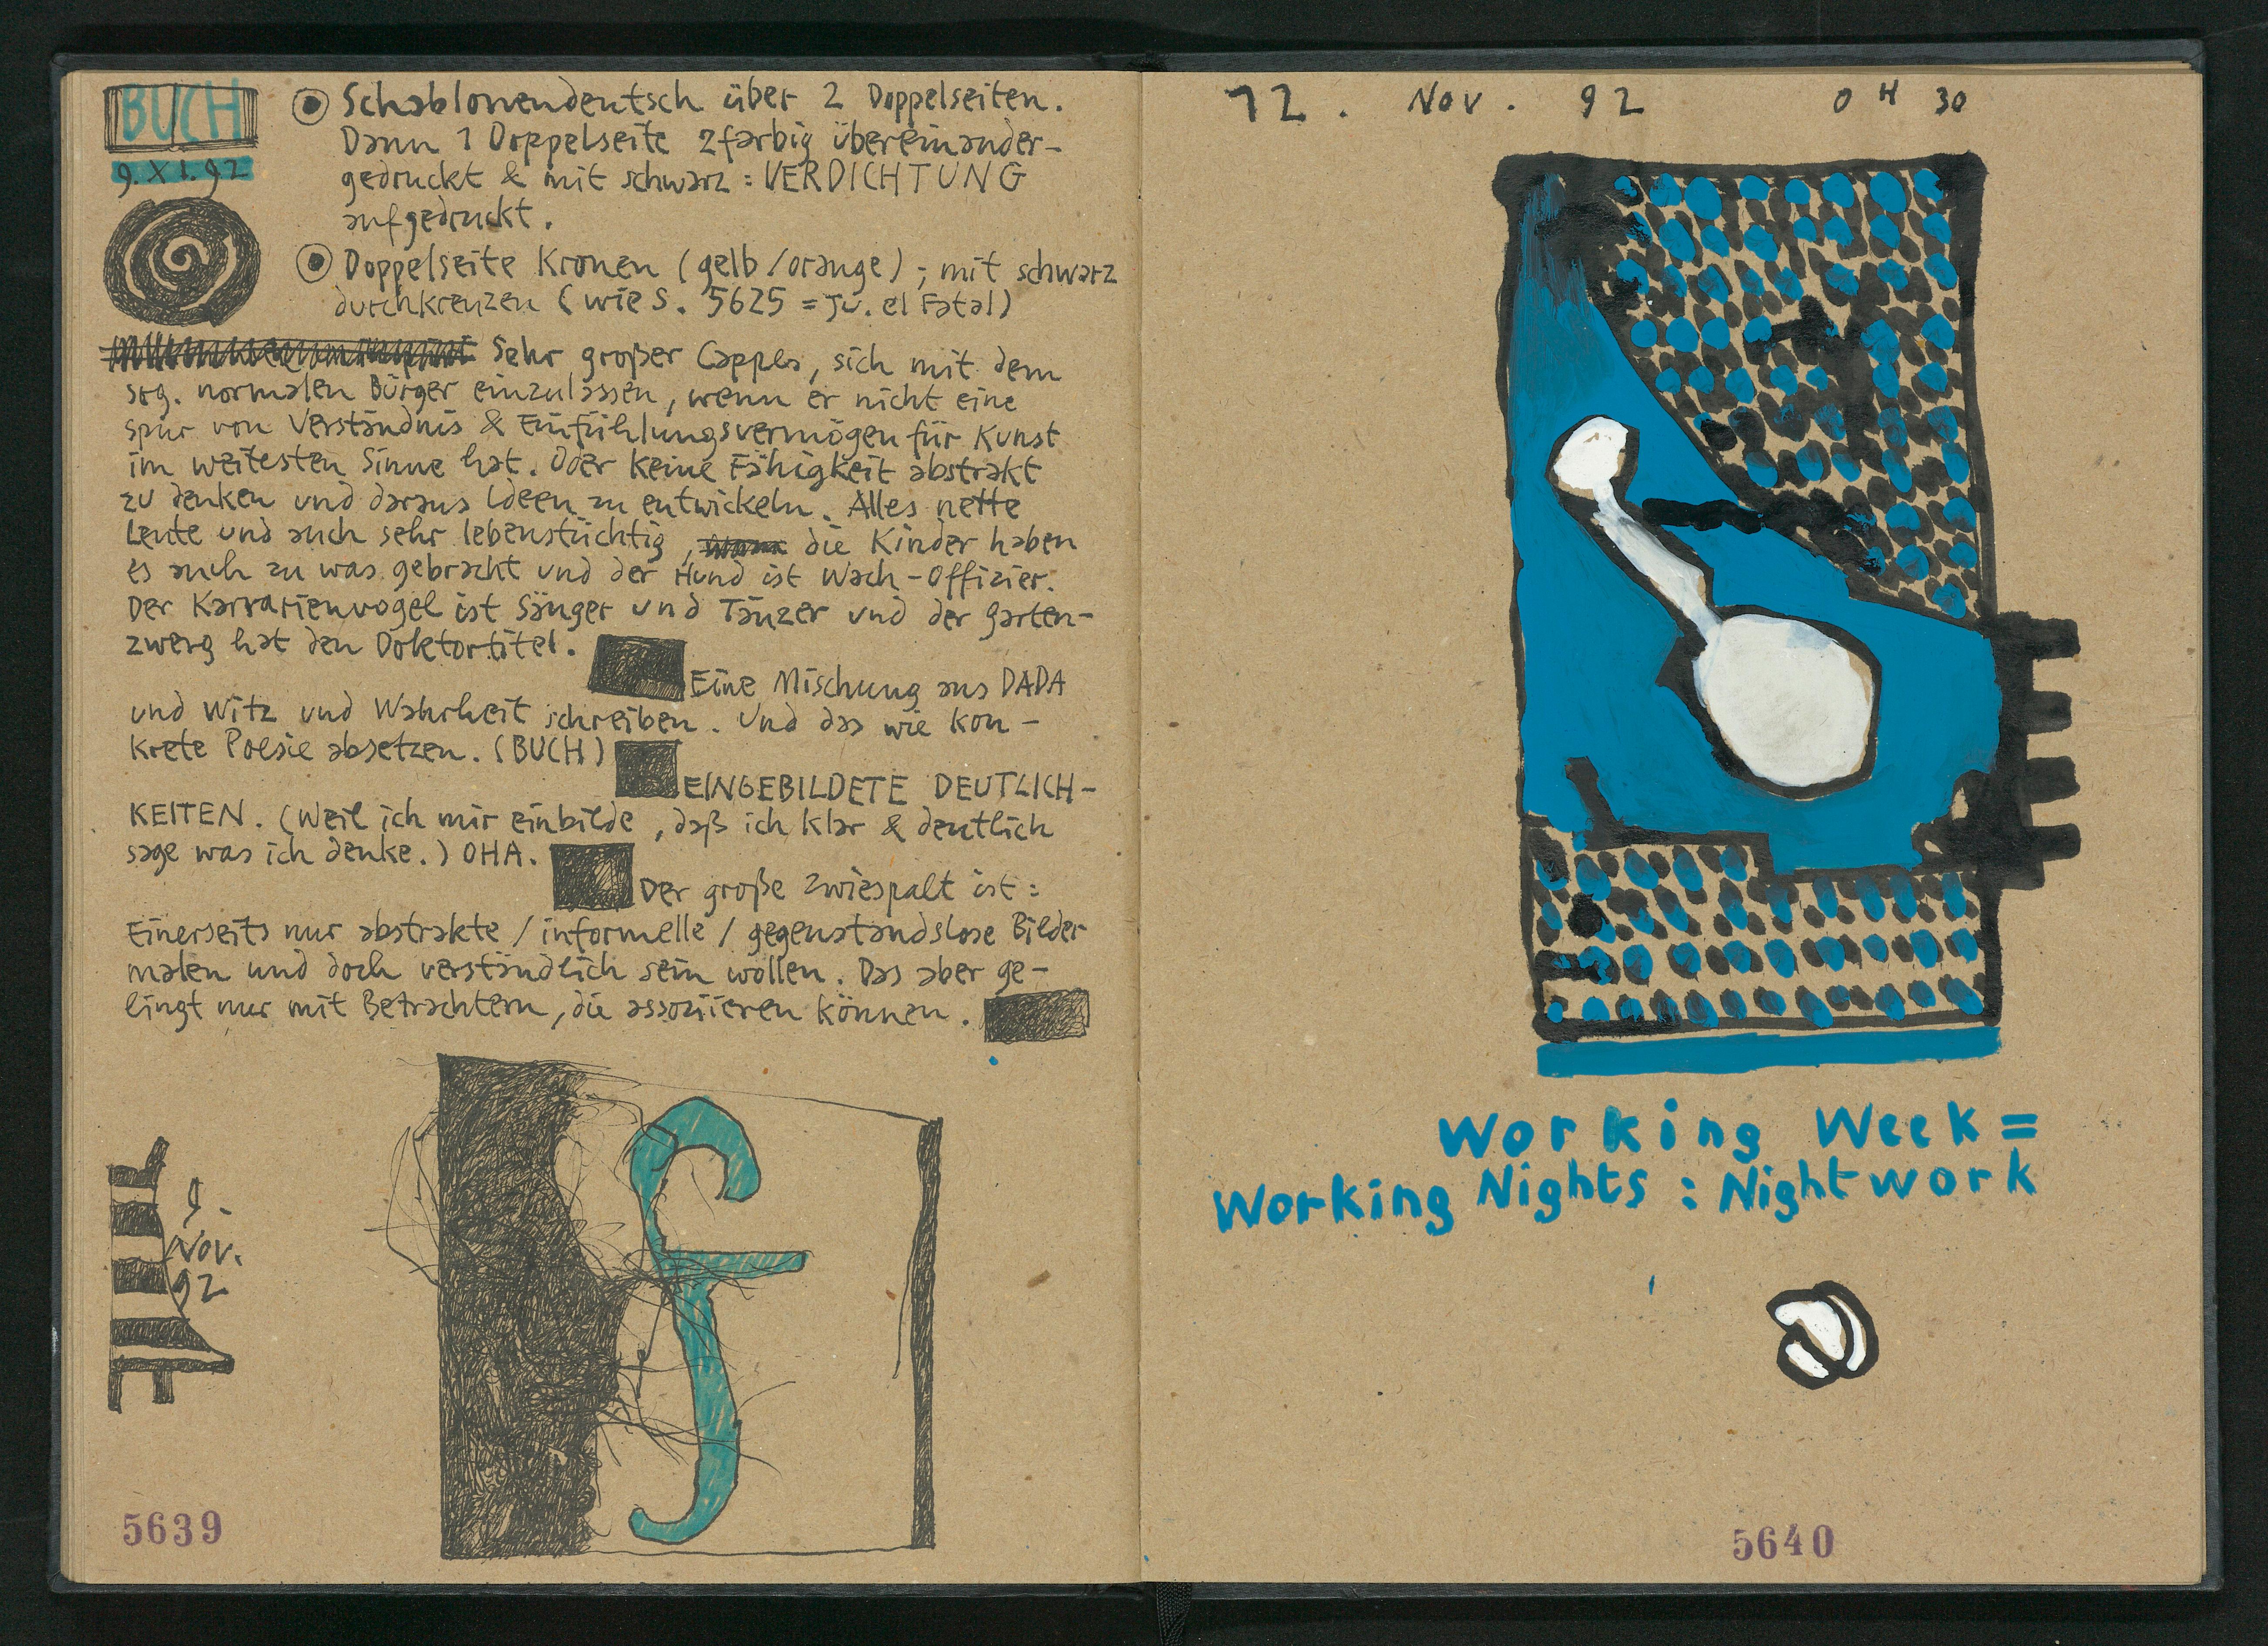 BUCH
9.XI.92
Schablonendeutsch über 2 Doppelseiten.
Dann 1 Doppelseite 2farbig übereinander-
gedruckt & mit schwarz : VERDICHTUNG
aufgedruckt.
Doppelseite Kronen (gelb/orange); mit schwarz
durchkreuzen (wie S. 5625 = Ju. el Fatal)
Sehr großer Cappes, sich mit dem
sog. normalen Bürger einzulassen, wenn er nicht eine
Spur von Verständnis & Einfühlungsvermögen für Kunst
im weitesten Sinne hat. Oder keine Fähigkeit abstrakt
zu denken und daraus Ideen zu entwickeln. Alles nette
Leute und auch sehr lebenstüchtig, die Kinder haben
es auch zu was gebracht und der Hund ist Wach-Offizier.
Der Kanarienvogel ist Sänger und Tänzer und der Garten-
zwerg hat den Doktortitel.
Eine Mischung aus DADA
und Witz und Wahrheit schreiben. Und das wie kon-
krete Poesie absetzen. (BUCH)
EINGEBILDETE DEUTLICH-
KEITEN. (Weil ich mir einbilde, daß ich klar & deutlich
sage was ich denke.) OHA.
Der große Zwiespalt ist:
Einerseits nur abstrakte / informelle / gegenstandslose Bilder
malen und doch verständlich sein wollen. Das aber ge-
lingt nur mit Betrachtern, die assoziieren können.
9.
Nov.
92
5639
12. Nov. 92 0 H 30
Working Week =
Working Nights : Nightwork
5640